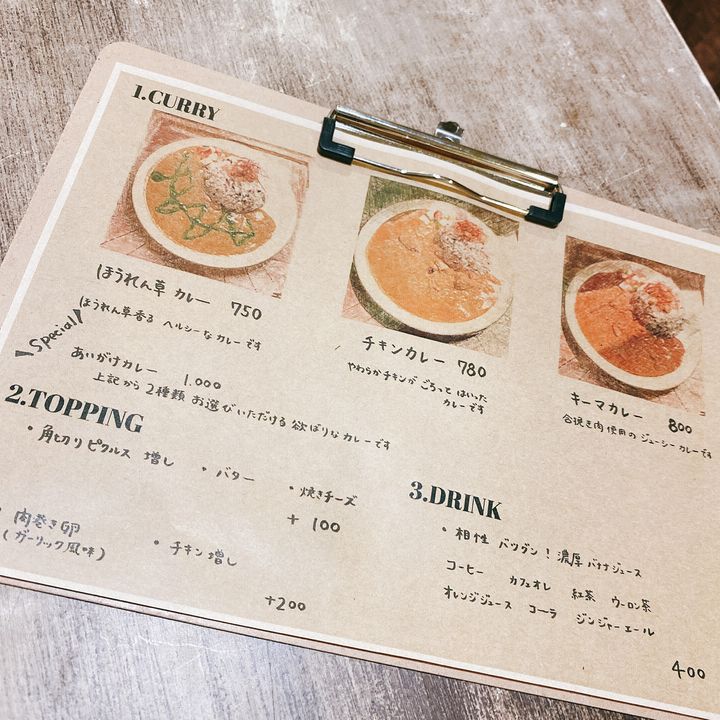 1.CURRY
ほうれん草カレー 750
ほうれん草香る ヘルシーなカレーです
チキンカレー 780
やわらかチキンが ごろって はいった
カレーです
キーマカレー 800
合挽き肉使用の ジューシーカレーです
Special
あいがけカレー 1.000
上記から 2種類 お選びいただける 欲ばりなカレーです
2.TOPPING
・角切りピクルス 増し ・バター ・焼きチーズ
+100
・肉巻き卵
(ガーリック風味)
・チキン増し
+200
3.DRINK
・相性 バツグン!濃厚バナナジュース
コーヒー カフェオレ 紅茶 ウーロン茶
オレンジジュース コーラ ジンジャーエール
400